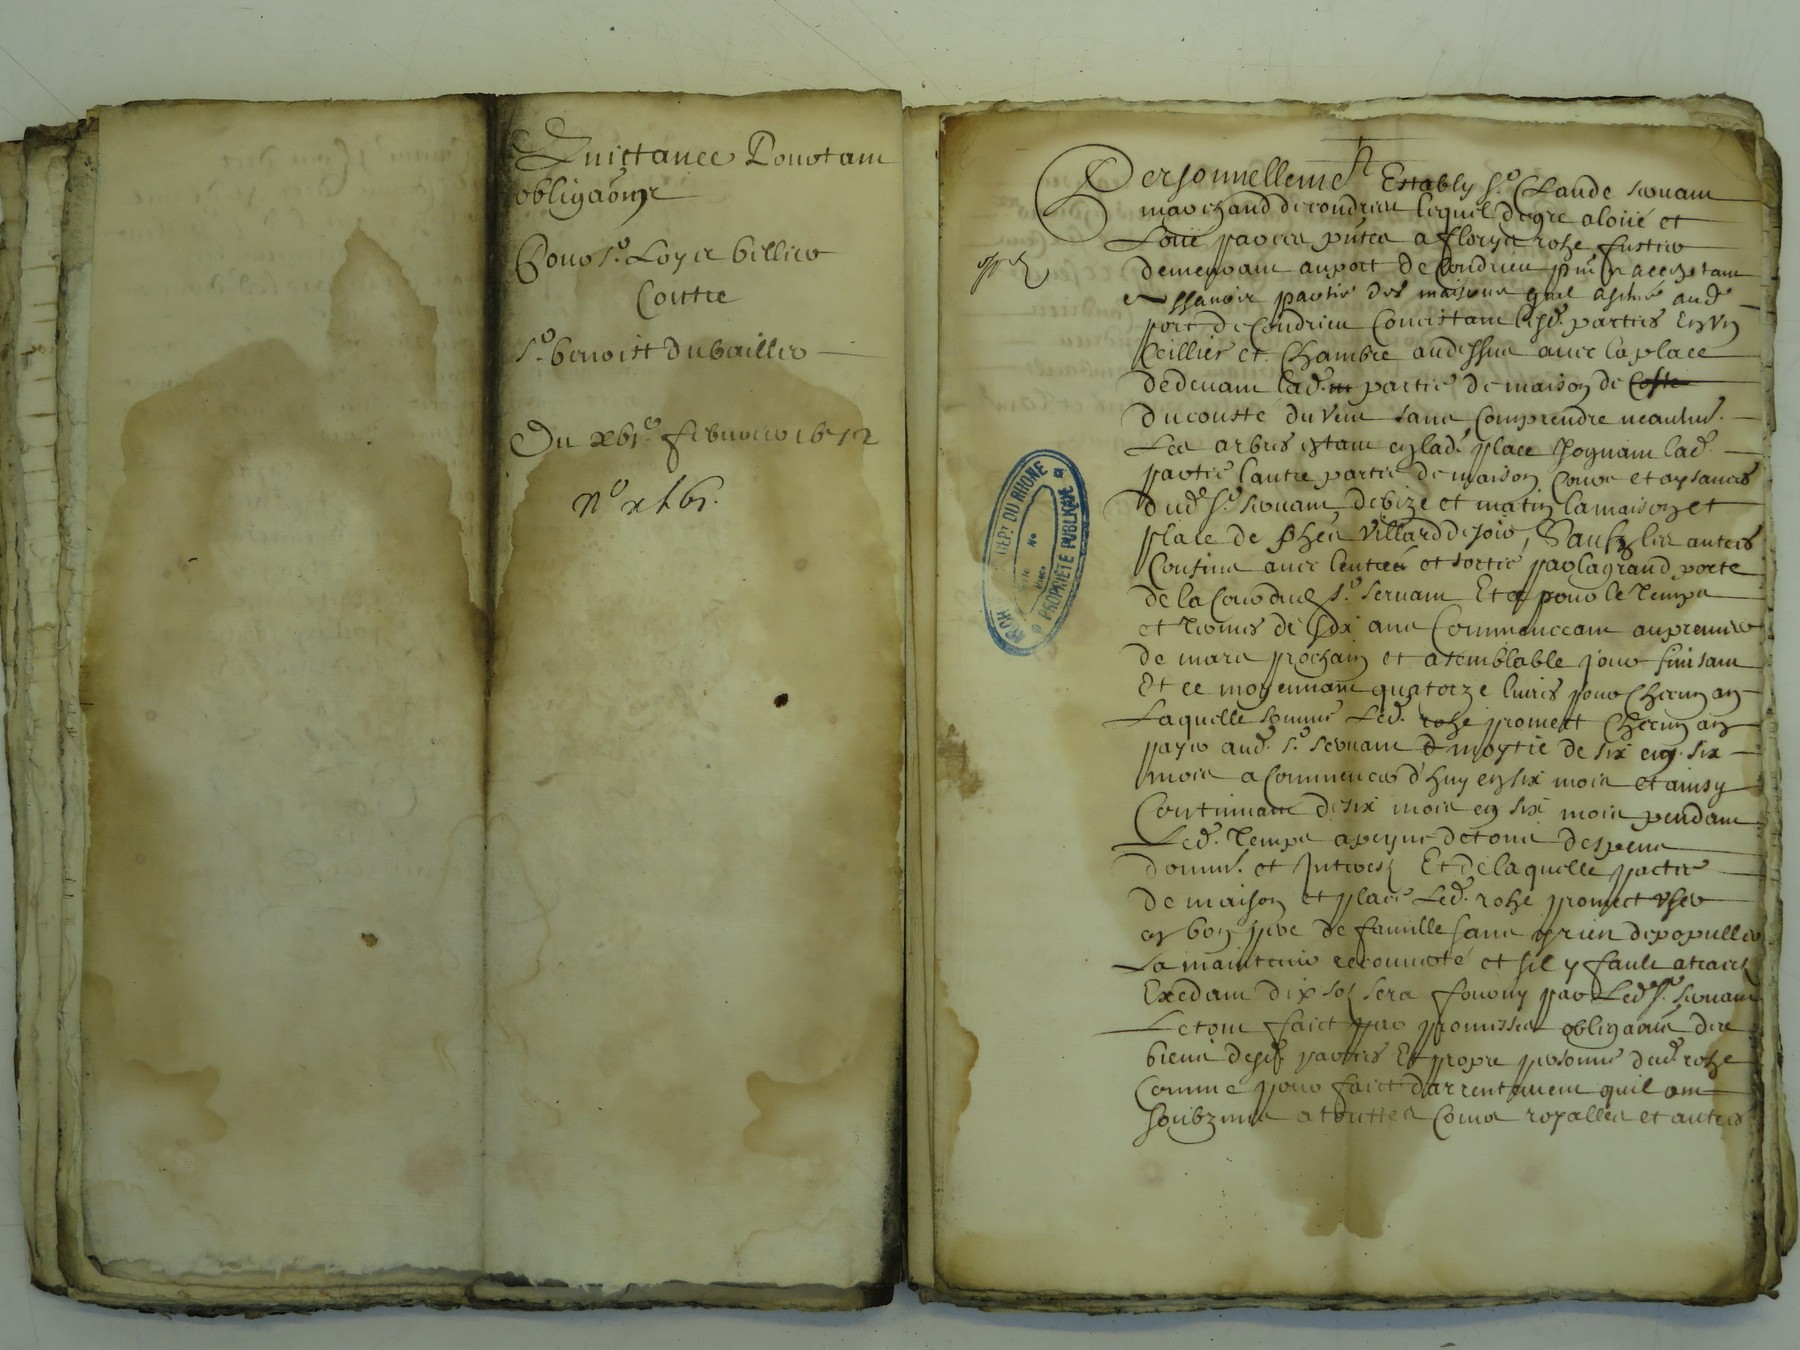 Quictance Portant
obligaōn
Pour Sr. Loyer billier
Contre
Sr. benoist duvaillier
Du xvie. febvrier 1652
No xlvi.
ARCH DEPT. DU RHONE
No
PROPRIETE PUBLIQUE
Personnellemet Estably Sr. Claude servant
marchand de condrieu lequel de gre a loüé et
Loüe par ces pñtes a fleury rohe fustier
demeurant au port de Condrieu pñt et acceptant
a ssavoir partie des maisons quil a scitué aud.
port de Condrieu Concistant lesd. parties en un
Ceillier et Chambre au dessus avec la place
de devant lad. partie de maison de Coste
du cousté du vent sans Comprendre neantmt.
Les arbres estant en lad. place Joignant lad.
partie l'autre partie de maison Cour et aysances
dud. Sr. servant de bize et matin la maison et
place de Villard de soir, Saufz les autres
Confins avec l'entrée et sortie par la grand porte
de la Cour dud. Sr. servant Et pour le Temps
et Termes de six ans Commenceant au premier
de mars prochain et a semblable jour finisant
Et ce moyennant quatorze livres pour Chacun an
Laquelle somme Led. rohe promect Chacun an
payer aud. Sr. servant moytié de six en six
mois a Commencer d'huy en six mois et ainsy
Continuant de six mois en six mois pendant
Led. Temps a peyne de tous despens
domm. et Interestz Et de laquelle partie
de maison et place Led. rohe promect user
en bon pere de famille sans y rien depopuller
La maintenir recouverte et sil y fault
Exedant dix solz sera fourny par Led. Sr. servant
Le tout faict par promesses obligaōns des
biens desd. parties Et propre personne dud. rohe
Comme pour faict d'arrentement quil ont
soubzmis a touttes Cours royalles et autres